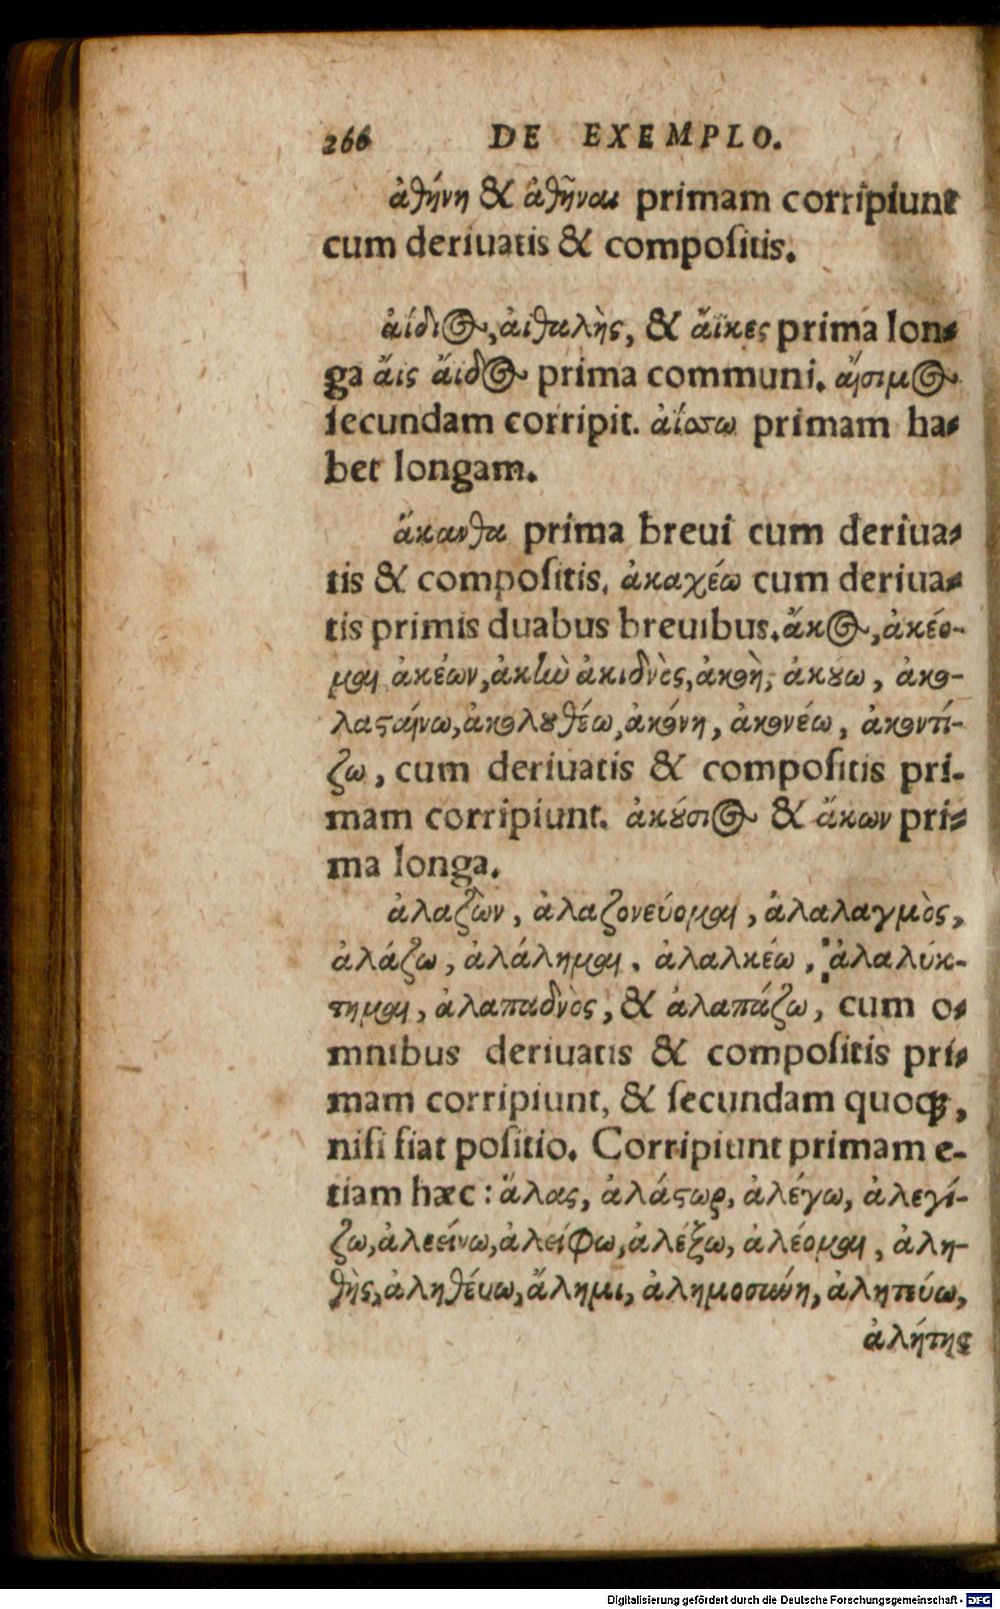 266 DE EXEMPLO.
ἀθήνη & ἀθῆναι primam corripiunt
cum deriuatis & compoſitis.
ἀίδιος, ἀιθαλὴς, & ἄϊκες prima lon-
ga ἄις ἄϊδος prima communi. αἴσιμος
ſecundam corripit. ἀΐσσω primam ha-
bet longam.
ἄκανθα prima breui cum deriua-
tis & compoſitis. ἀκαχέω cum deriua-
tis primis duabus breuibus. ἄκος, ἀκέο-
μαι ἀκέων, ἀκτὼ ἀκιδνὸς, ἀκοὴ, ἀκȣω, ἀκο-
λαςαίνω, ἀκολȣθέω, ἀκόνη, ἀκονέω, ἀκοντί-
ζω, cum deriuatis & compoſitis pri-
mam corripiunt. ἀκȣ́σιος & ἄκων pri-
ma longa.
ἀλαζὼν, ἀλαζονεύομαι, ἀλαλαγμὸς,
ἀλάζω, ἀλάλημαι, ἀλαλκέω, ἀλαλύκ-
τημαι, ἀλαπαδνὸς, & ἀλαπάζω, cum o-
mnibus deriuatis & compoſitis pri-
mam corripiunt, & ſecundam quoq;,
niſi fiat poſitio. Corripiunt primam e-
tiam hæc: ἄλας, ἀλάςωρ, ἀλέγω, ἀλεγί-
ζω, ἀλεείνω, ἀλείφω, ἀλέξω, ἀλέομαι, ἀλη-
θὴς, ἀληθέυω, ἄλημι, ἀλημοσύνη, ἀλητεύω,
ἀλήτης
Digitalisierung gefördert durch die Deutsche Forschungsgemeinschaft - DFG